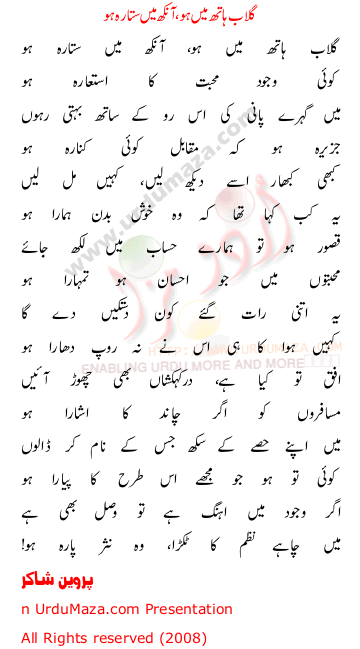 گلاب ہاتھ میں ہو، آنکھ میں ستارہ ہو
گلاب ہاتھ میں ہو، آنکھ میں ستارہ ہو
کوئی وجود محبت کا استعارہ ہو
میں گہرے پانی کی اس رو کے ساتھ بہتی رہوں
جزیرہ ہو کہ مقابل کوئی کنارہ ہو
کبھی کبھار اسے دیکھ لیں، کہیں مل لیں
یہ کب کہا تھا کہ وہ خوش بدن ہمارا ہو
قصور ہو تو ہمارے حساب میں لکھ جائے
محبتوں میں جو احسان ہو تمہارا ہو
یہ اتنی رات گئے کون دستکیں دے گا
کہیں ہوا کا ہی اس نے نہ روپ دھارا ہو
افق تو کیا ہے، درکہکشاں بھی چھوڑ آئیں
مسافروں کو اگر چاند کا اشارا ہو
میں اپنے حصے کے سکھ جس کے نام کر ڈالوں
کوئی تو ہو جو مجھے اس طرح کا پیارا ہو
اگر وجود میں اہنگ ہے تو وصل بھی ہے
میں چاہے نظم کا ٹکڑا، وہ نثر پارہ ہو!
پروین شاکر
n UrduMaza.com Presentation
All Rights reserved (2008)
www.urdumaza.com
اردو مزا
HTTP://WWW.URDUMAZA.COM
ENABLING URDU MORE AND MORE